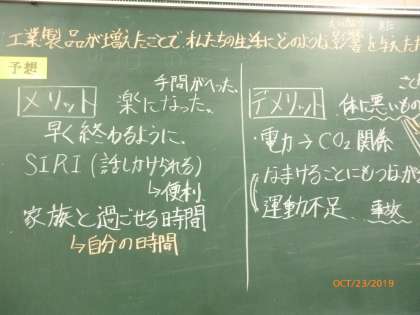 工業製品が増えたことで私たちの生活にどのような影響を与えた
予想
メリット
手間がへった。
楽になった。
早く終わるように、
SIRI(話しかけられる)
↳便利
家族と過ごせる時間
↳自分の時間
デメリット
体に悪いもの
・電力→CO2関係
・なまけることにもつながる
・運動不足、事故
OCT/23/2019